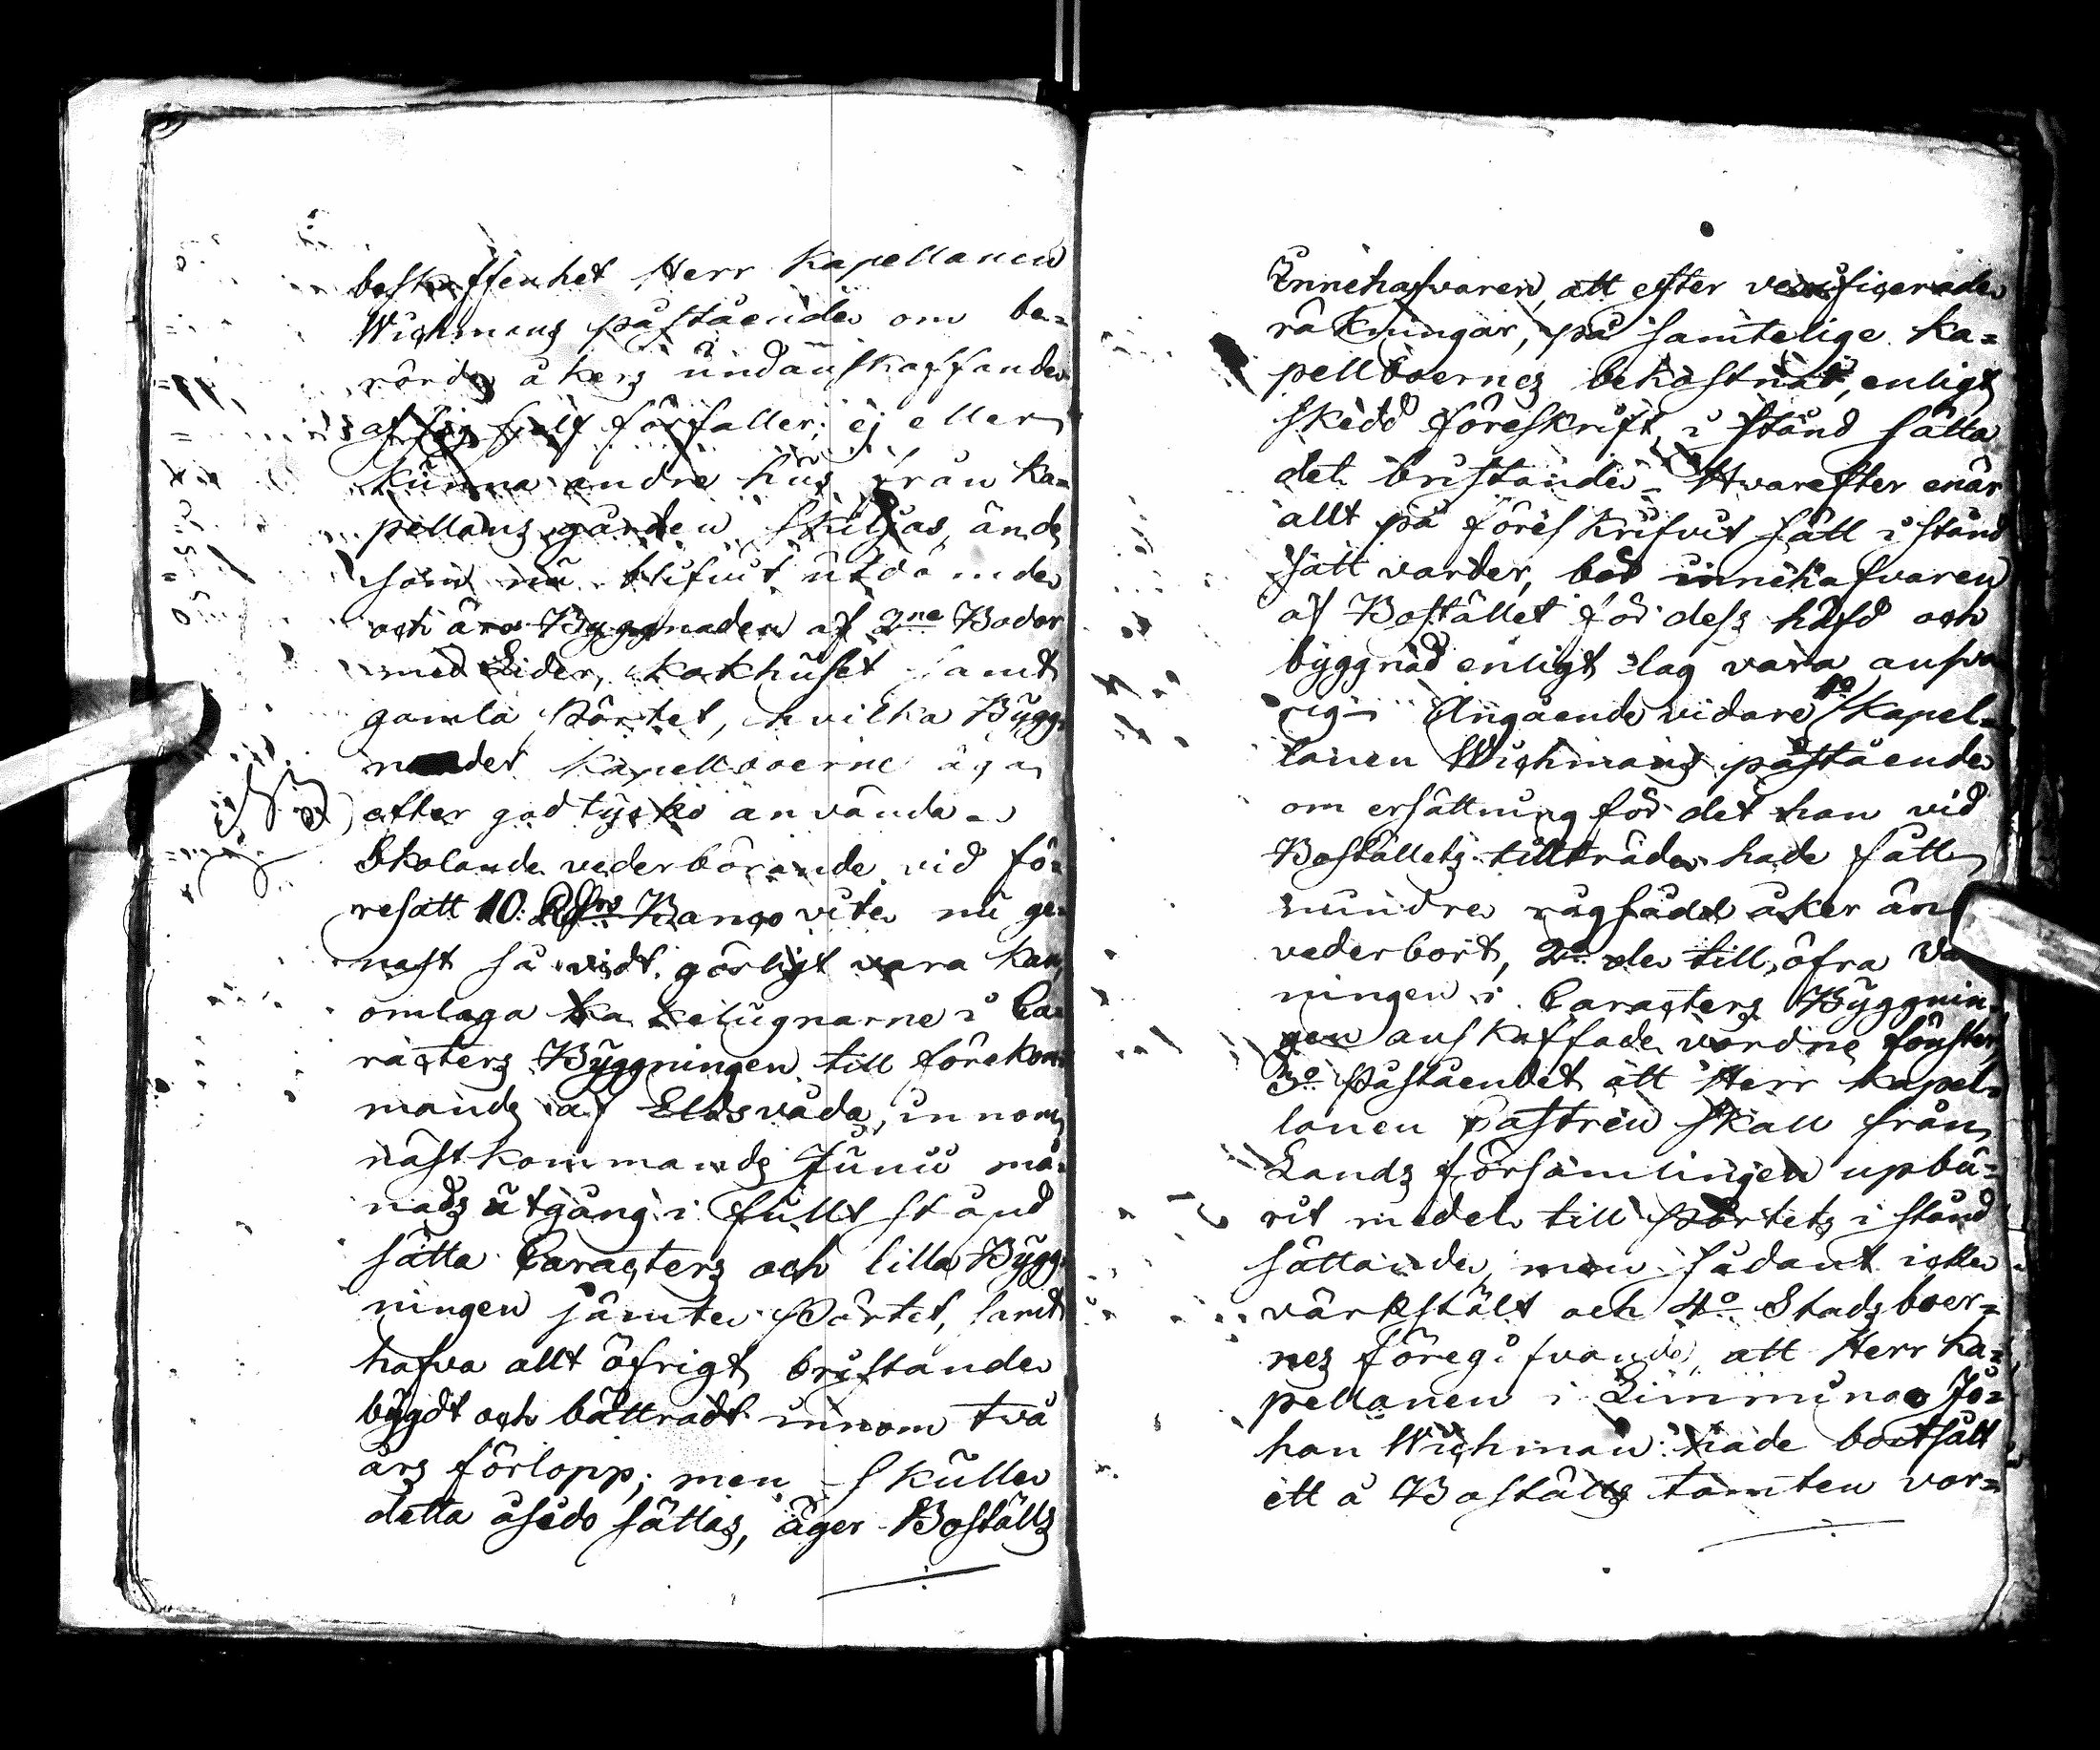 beskaffenhet Herr Kapellanen
Wichmans påstående om be=
rörde åkers undanskaffande
af sig sjelf förfaller; ej eller
kunna andre hus från Ka=
pellans gården skiljas, än de
som nu blifvit utdömde
och äro Byggnaden af 2ne Bodar
med Lider, kokhuset samt
gamla Pörtet, hvilka Bygg=
nader Kapellboerne äga
efter godtycko använda =
Skolande vederbörande vid fö=
resatt 10 Rdr Banco vite nu ge=
nast så vidt görligt vara kan,
omlaga kakelugnarne i Ca=
racters Byggningen till förekom=
mande af Eldsvåda, innom
nästkommande Junii må=
nads utgång i fullt stånd
sätta Caracters och lilla Bygg=
ningen jämte Pörtet, samt
hafva allt öfrigt bristande
bygdt och bättradt innom två
års förlopp; men skulle
detta åsido sättas, äger Boställs
Innehafvaren, att efter verificerade
räkningar, på samtelige Ka=
pellboernes bekostnat, enligt
skedd föreskrift, i stånd sätta
det bristande = Hvarefter enär
allt på föreskrifvit sätt i stånd
satt varder, bör innehafvaren
af Bostället för dess häfd och
byggnad enligt lag vara ansva
rig = Angående vidare 1o Kapel=
lanen Wichmans påstående
om ersättning för det han vid
Boställets tillträde hade fått
mindre rågsådd åker än
vederbort, 2o de till öfra Vå
ningen i Caracters Byggnin=
gen anskaffade vordne fönster,
3o Påståendet att Herr Kapel=
lanen Castrén skall från
Lands församlingen upbu=
rit medel till Pörtets i stånd
sättande, men sådant icke
värkstält och 4o Stadsboer=
nes föregifvande, att Herr Ka=
pellanen i Limmingo Jo=
han Wichman hade bortsålt
ett å Boställs tomten var=